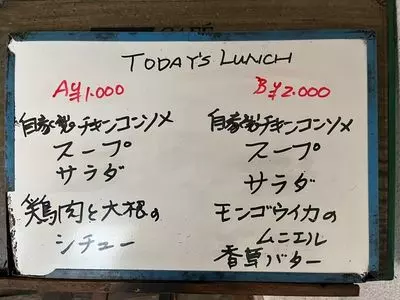 TODAY'S LUNCH
A ¥1.000
自家製チキンコンソメ
スープ
サラダ
鶏肉と大根の
シチュー
B ¥2.000
自家製チキンコンソメ
スープ
サラダ
モンゴウイカの
ムニエル
香草バター